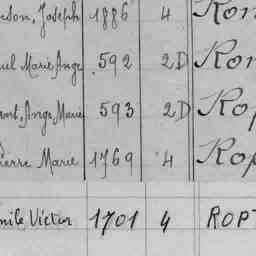 son, Joseph 1886 4 Ron
uel Marie Ange 592 2D Ron
ent, Ange Marie 593 2D Rop
ierre Marie 1769 4 Rop
mile Victor 1701 4 ROPT